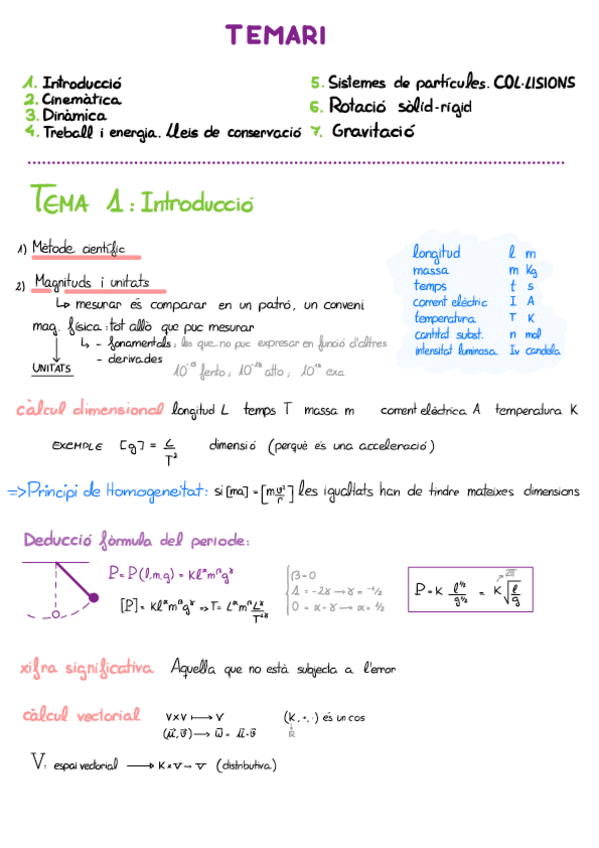 TEMARI
1. Introducció
2. Cinemàtica
3. Dinàmica
4. Treball i energia. Lleis de conservació
5. Sistemes de partícules. COL·LISIONS
6. Rotació sòlid-rígid
7. Gravitació
TEMA 1: Introducció
1) Mètode científic
2) Magnituds i unitats
↳ mesurar és comparar en un patró, un conveni
mag. física: tot allò que puc mesurar
↳ - fonamentals: les que no puc expresar en funció d'altres
- derivades
UNITATS
10⁻¹⁵ femto, 10⁻¹⁸ atto, 10¹⁸ exa
longitud l m
massa m Kg
temps t s
corrent elèctric I A
temperatura T K
cantitat subst. n mol
intensitat luminosa Iv candela
càlcul dimensional longitud L temps T massa m corrent elèctrica A temperatura K
EXEMPLE [g] = L/T² dimensió (perquè és una acceleració)
=> Principi de Homogeneïtat: si [ma] = [m v²/r] les igualtats han de tindre mateixes dimensions
Deducció fòrmula del període:
P = P(l,m,g) = Kl^α m^β g^γ
[P] = Kl^α m^β g^γ => T = L^α m^β L^γ/T^2γ
β = 0
1 = -2γ → γ = -1/2
0 = α + γ → α = 1/2
P = K l^1/2 / g^1/2 = K √(l/g)
2π
xifra significativa Aquella que no està subjecta a l'error
càlcul vectorial V×V ↦ V
(K, +, ·) és un cos
ℝ
V: espai vectorial → K×V → V (distributiva)